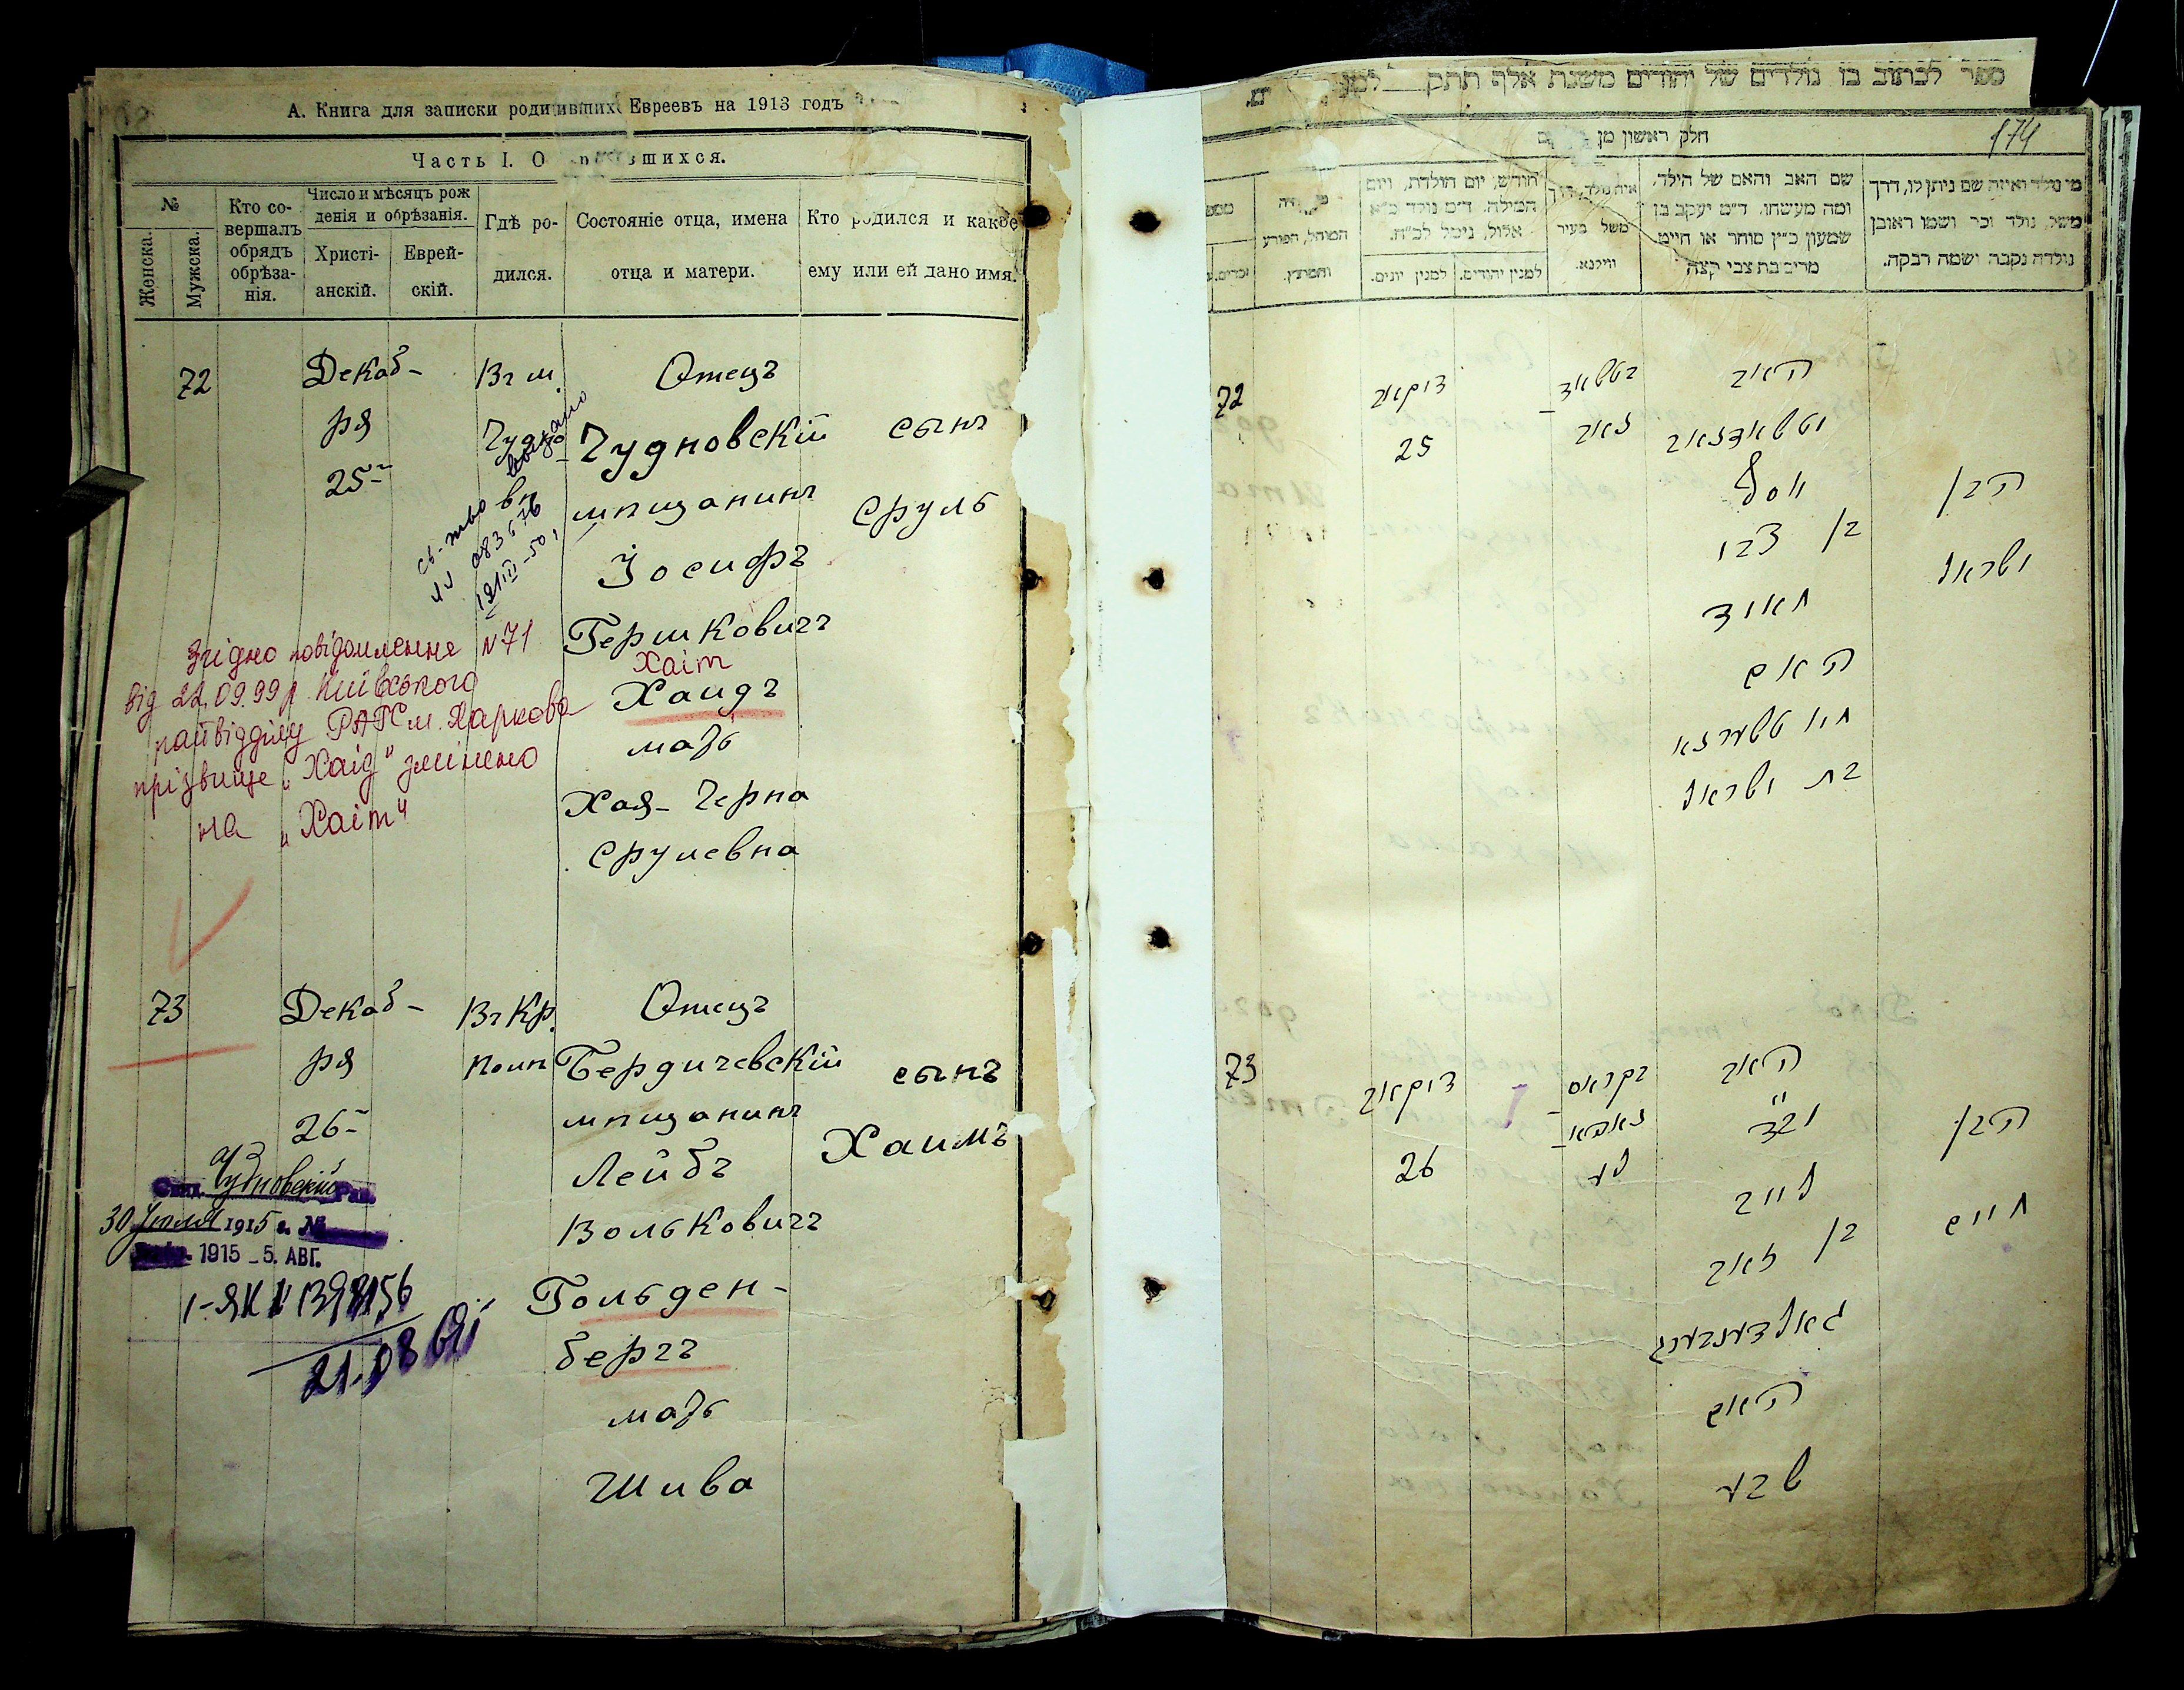 А. Книга для записки родившихся Евреевъ на 1913 годъ
Часть I. О родившихся.
№
Женска.
Мужска.
Кто совершалъ обрядъ обрѣзанія.
Число и мѣсяцъ рожденія и обрѣзанія.
Христіанскій.
Еврейскій.
Гдѣ родился.
Состояніе отца, имена отца и матери.
Кто родился и какое ему или ей дано имя.
72
Декаб-
ря
25
Въ м.
Чудно
Отецъ
Чудновскій
мѣщанинъ
Іосифъ
Гершковичъ
Хаіт
Хаидъ
мать
Хая-Черна
Срулевна
сынъ
Сруль
св-тво
083676
Згідно повідомлення №71
від 22.09.99 р. Київського
райвідділу РАГС м. Харкова
прізвище „Хаід" змінено
на „Хаіт"
73
Декаб-
ря
26
Въ Кр.
Отецъ
Бердичевскій
мѣщанинъ
Лейбъ
Вольковичъ
Гольден-
бергъ
мать
Шива
сынъ
Хаимъ
Чудновскій Рав.
30 Іюля 1915 г. №
1915 - 5. АВГ.
21.08
ספר לכתוב בו נולדים של יהודים משנת אלף תתק
חלק ראשון מן
174
מי נולד ואיזה שם ניתן לו, דרך
משל, נולד זכר ושמו ראובן
נולדה נקבה ושמה רבקה.
שם האב והאם של הילד,
ומה מעשהו. ד״מ יעקב בן
שמעון כ״ץ סוחר או חייט
מרים בת צבי קצה
משל בעיר
ווילנא.
חודש, יום הולדת, ויום
המילה. ד״מ נולד כ״א
אלול, נימל לכ״ח.
למנין יהודים.
למנין יונים.
המוהל, הפורע
והמוצץ.
72
דיקאב
25
האב
יוסף
בן צבי
חאיד
האם
חי׳ טשערנא
בת ישראל
הבן
ישראל
73
דיקאב
26
האב
לייב
בן זאב
גאלדענבערג
האם
שבע
הבן
חיים